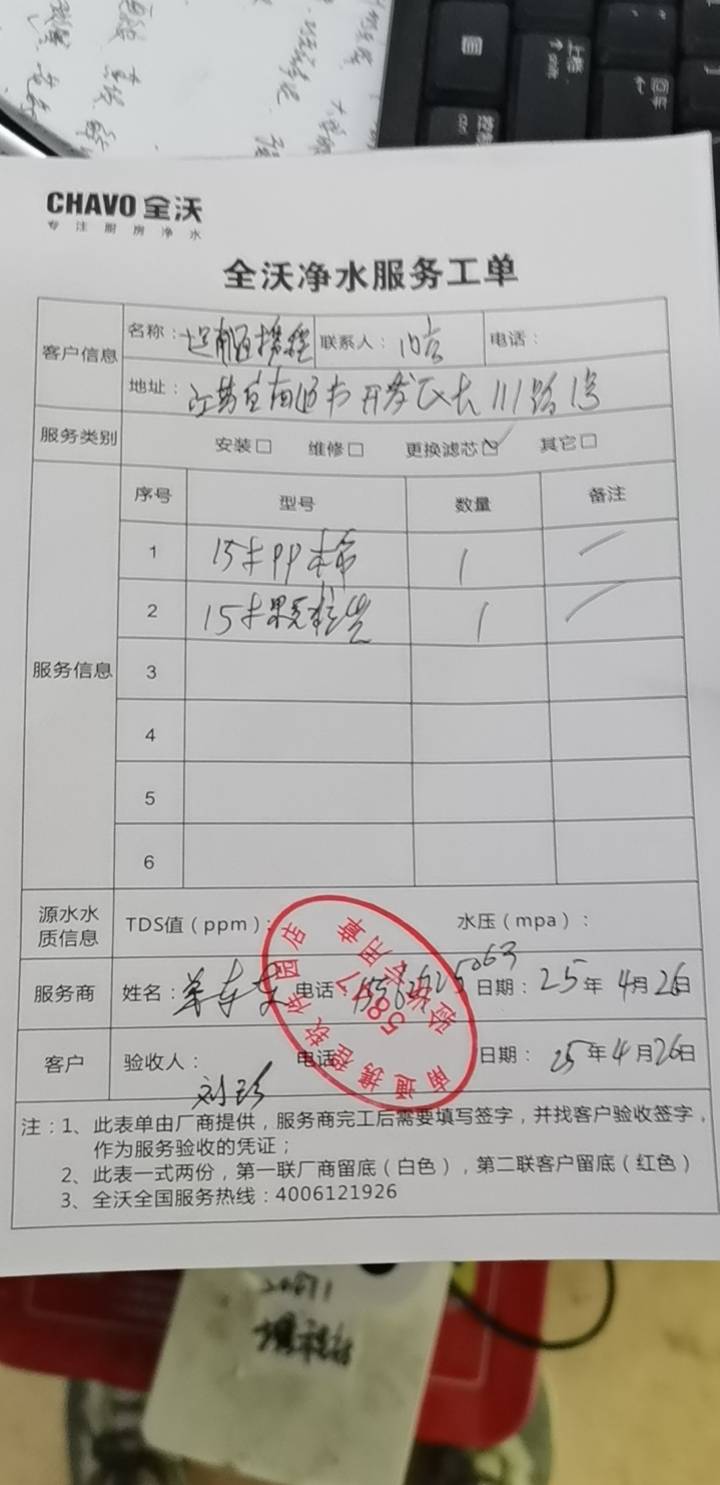 CHAVO 全沃
专注厨房净水
全沃净水服务工单
客户信息
名称：
联系人：
电话：
地址：江苏省南通市开发区长川路1号
服务类别
安装□ 维修□ 更换滤芯☑ 其它□
服务信息
序号 型号 数量 备注
1 15寸PP棉 1 /
2 15寸颗粒炭 1 /
3
4
5
6
源水水质信息
TDS值（ppm）： 水压（mpa）：
服务商 姓名： 电话 日期：25年4月26日
客户 验收人：刘珍 电话 日期：25年4月26日
南通携程软件园店
5847
验收专用章
注：1、此表单由厂商提供，服务商完工后需要填写签字，并找客户验收签字，
作为服务验收的凭证；
2、此表一式两份，第一联厂商留底（白色），第二联客户留底（红色）
3、全沃全国服务热线：4006121926
上档
回车